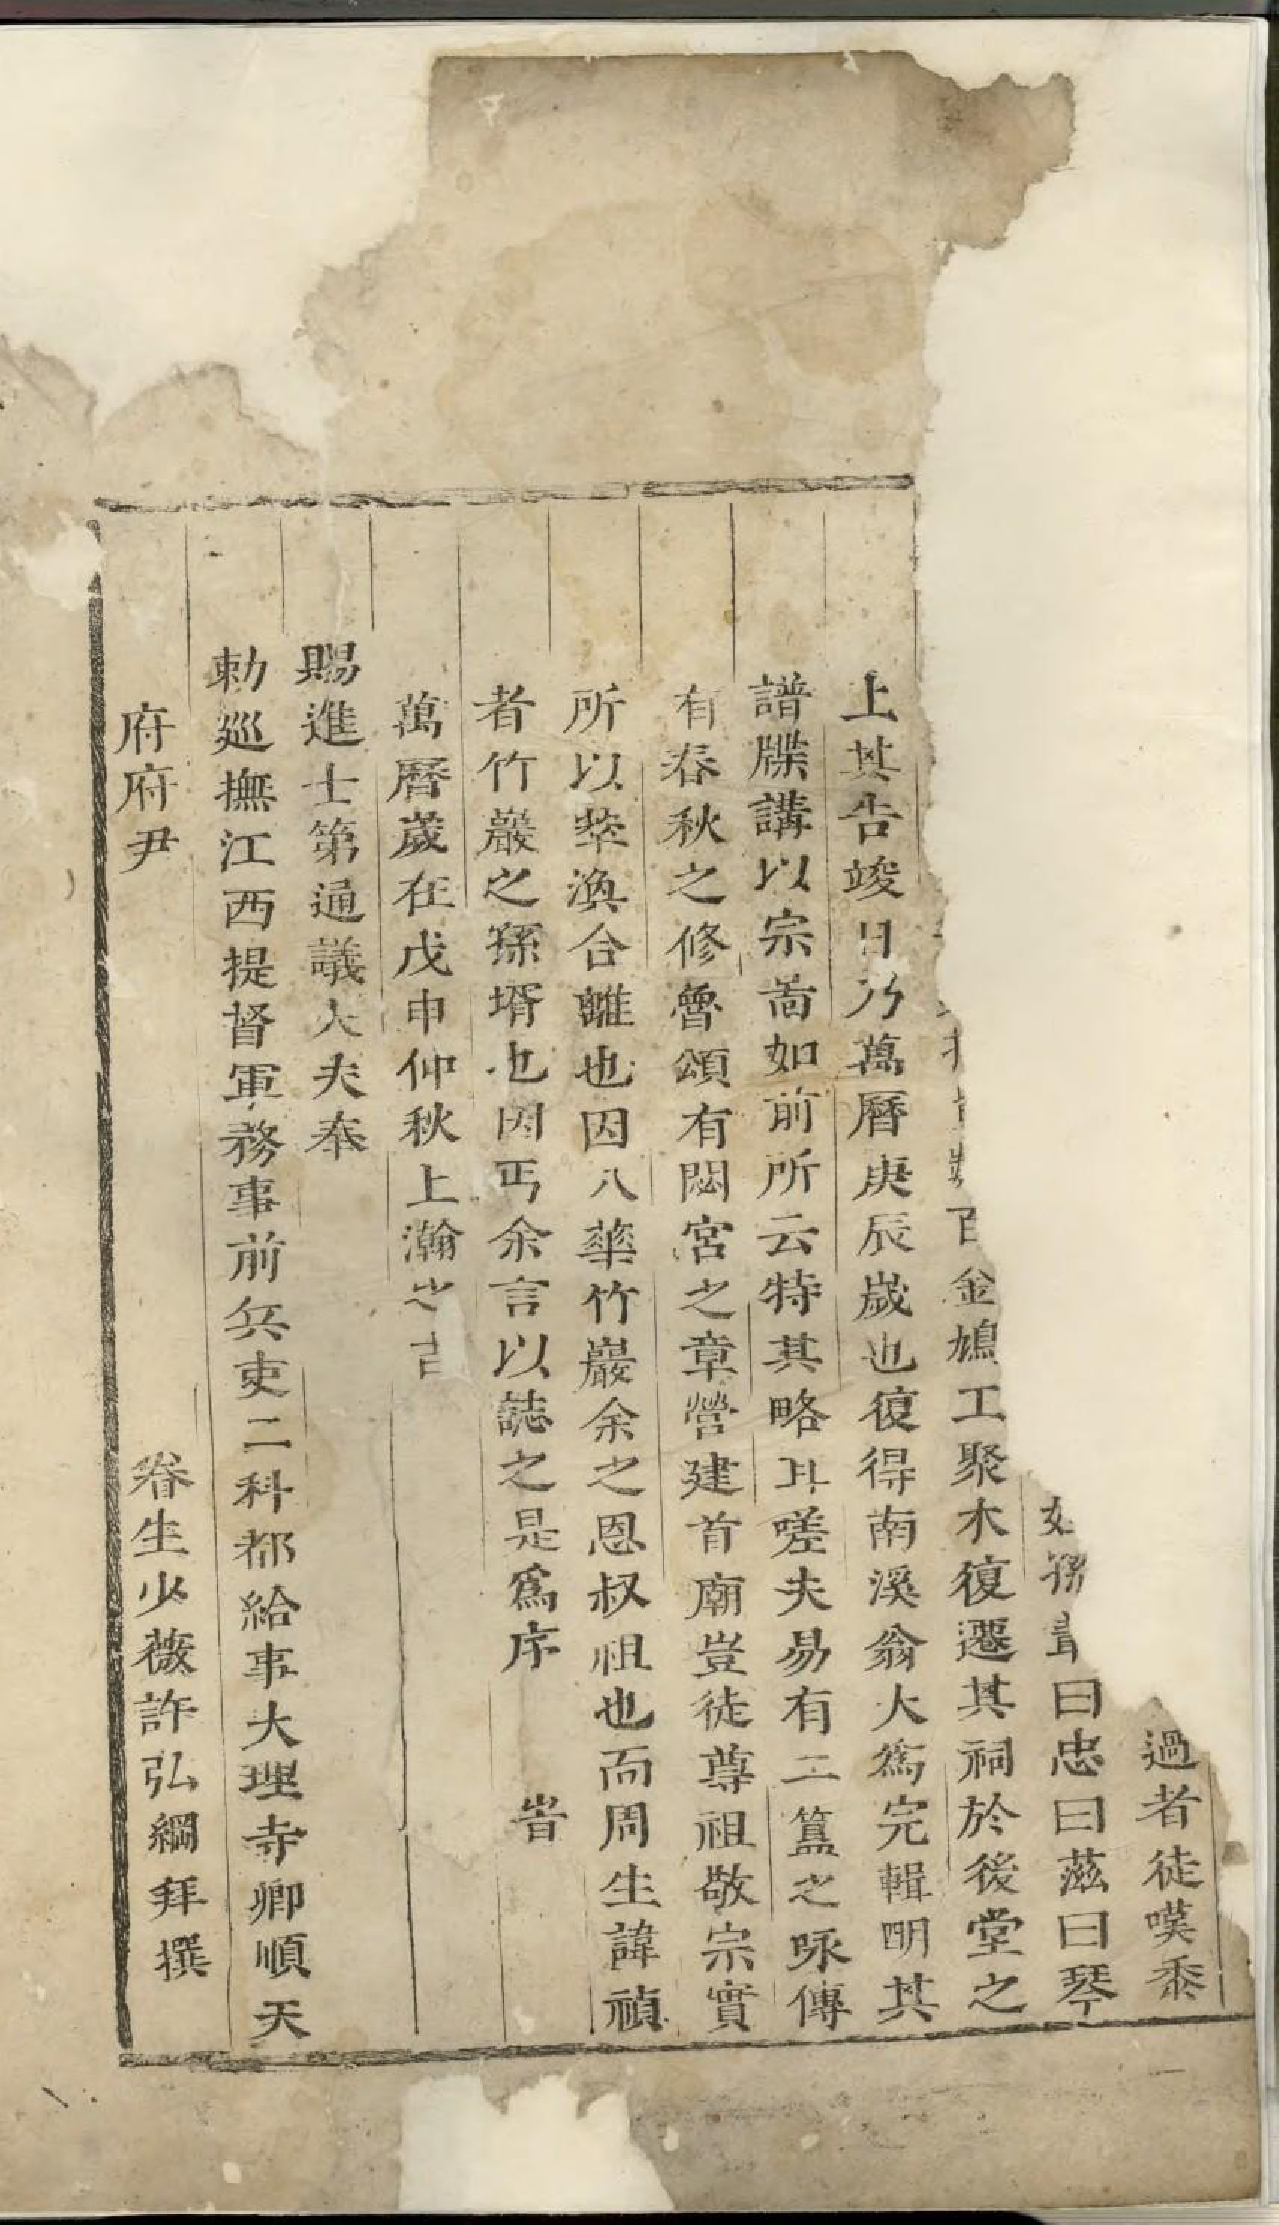 過者徒嘆黍
孫 曰忠曰茲曰琴
百金鳩工聚木復遷其祠於後堂之
上其告竣日乃萬曆庚辰歲也復得南溪翁大為完輯明其
譜牒講以宗啚如前所云特其略耳嗟夫易有二簋之咏傳
有春秋之修魯頌有閟宮之章營建首廟豈徒尊祖敬宗實
所以萃渙合離也因八華竹巖余之恩叔祖也而周生諱禎
者竹巖之孫壻也因丐余言以誌之是爲序 旹
萬曆歲在戊申仲秋上瀚之吉
賜進士第通議大夫奉
勅巡撫江西提督軍務事前兵吏二科都給事大理寺卿順天
府府尹 眷生少薇許弘綱拜撰